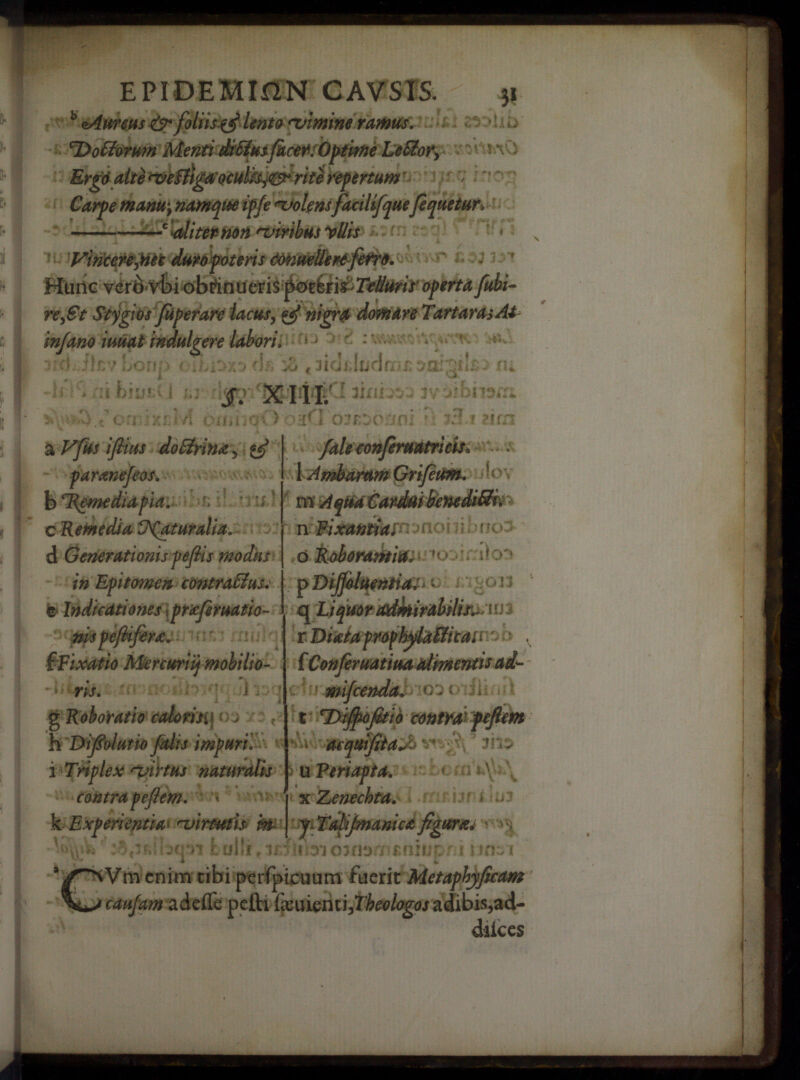 EPIDEMIΩN CAVSIS. 31
b Aureus & foliis & lento vimine ramus.
Doctorum Menti dictus sacer: Optime Lector,
Ergò altè vestiga oculis, & ritè repertum
Carpe manu; namque ipse volens facilisque sequetur.
c aliter non viribus vllis
Vincere, nec duro poteris conuellere ferro.
Hunc verò vbi obtinueris poteris Telluris operta subi-
re, Et Stygios superare lacus, & nigra domare Tartara; At
insano iuuat indulgere labori.
§. XIII.
a Vsus istius doctrinæ, &
paræneseos.
b Remedia pia.
c Remedia Naturalia.
d Generationis pestis modus
in Epitomen contractus.
e Indicationes præseruatio-
nis pestiferæ.
f Fixatio Mercurij mobilio-
ris.
g Roboratio caloris
h Dissolutio salis impuri.
i Triplex virtus naturalis
contra pestem.
k Experientia virtutis in
sale conseruatricis.
l Ambarum Griseum.
m Aqua Cardui benedicti.
n Fixantia
o Roborantia
p Dissoluentia
q Liquor admirabilis.
r Diæta prophylactica
s Conseruatiua alimentis ad-
miscenda.
t Dispositio contra pestem
acquisita
u Periapta.
x Zenechta.
y Talismanicæ figuræ
a CVm enim tibi perspicuum fuerit Metaphysicam
causam adesse pesti sæuienti, Theologos adibis, ad-
disces